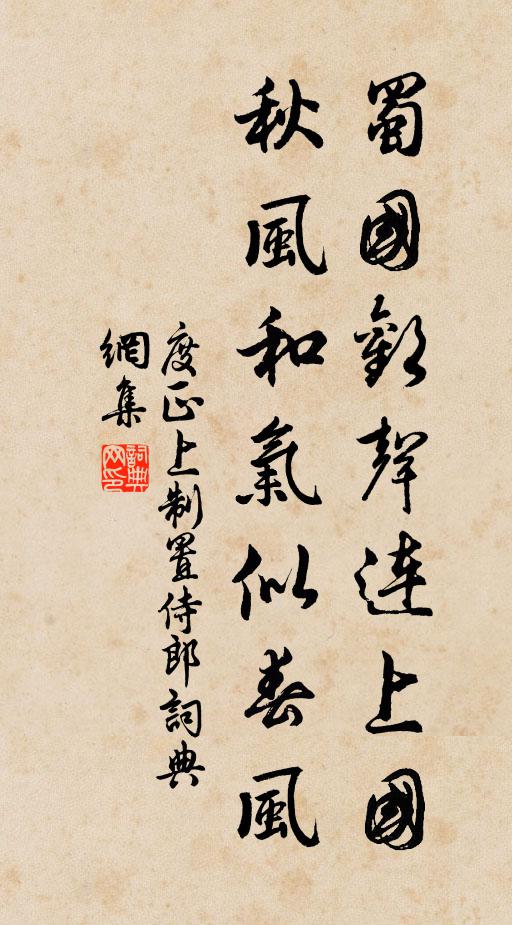 蜀國歡聲連上國
秋風和氣似春風
度正上制置侍郎詞典
網集
詞典
网印